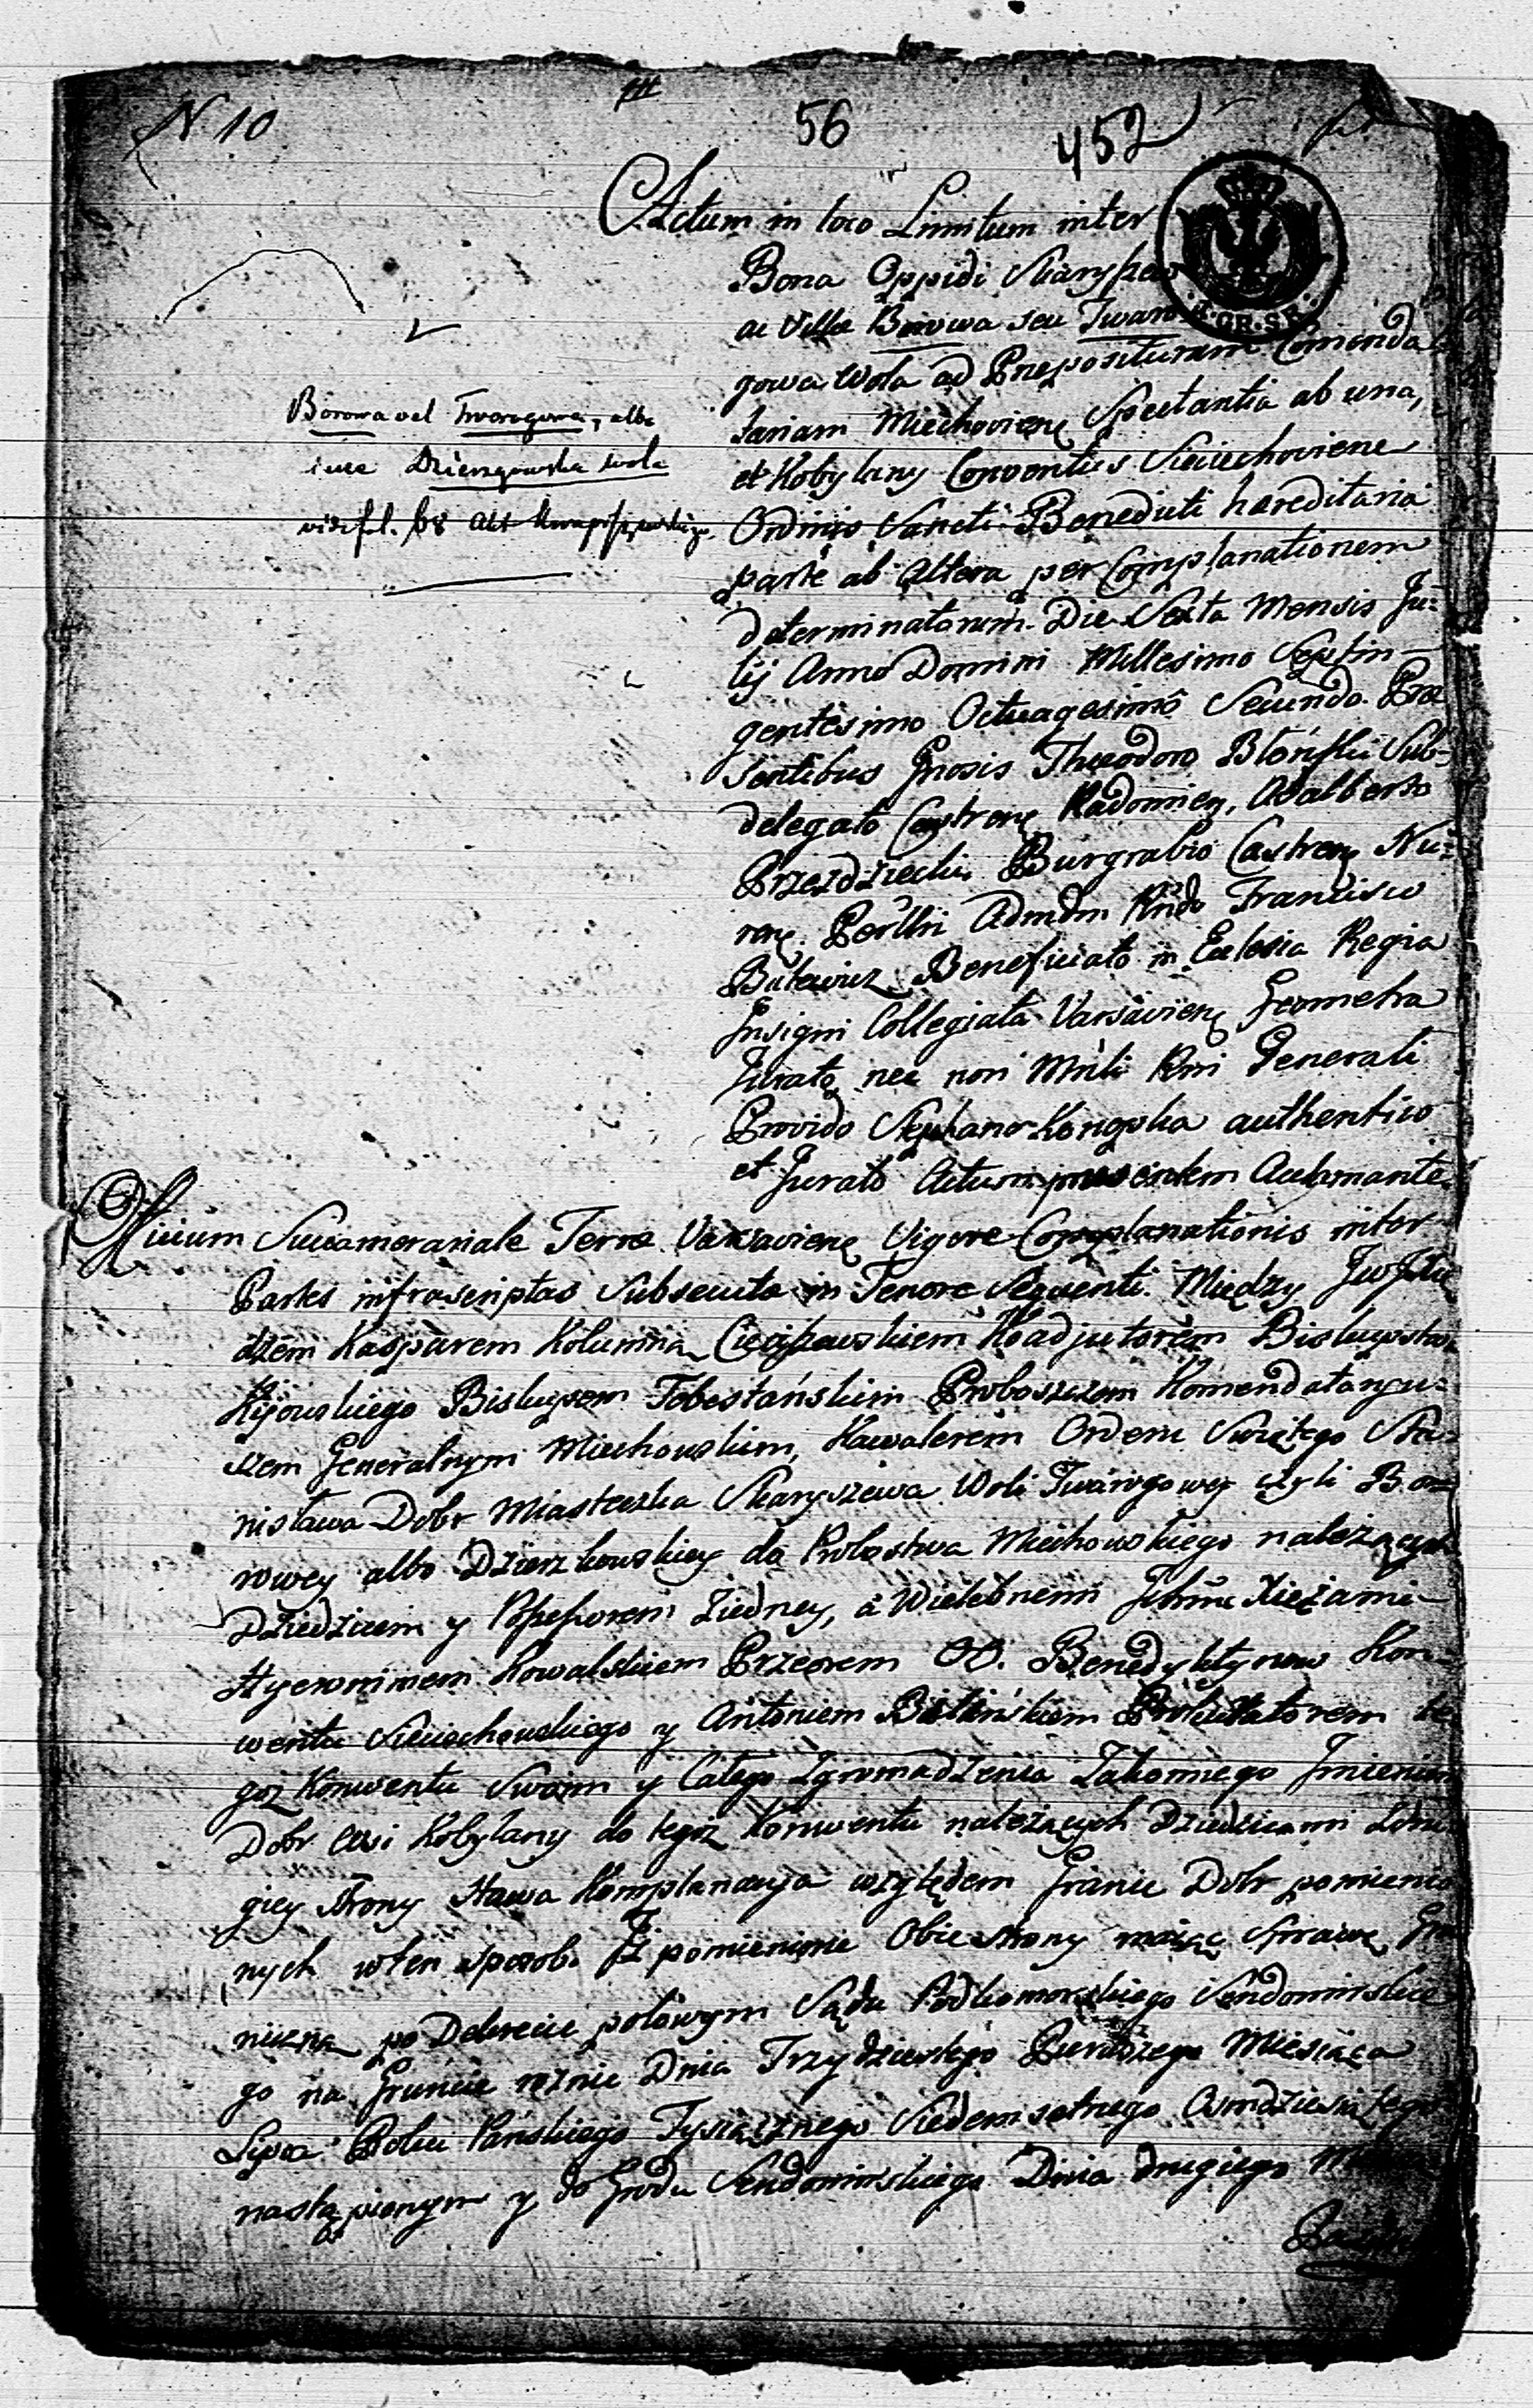 N 10
56
452
Actum in loco Limitum inter
Bona Oppidi Skaryszew
ac Villæ Borowa seu Twaro
gowa Wola ad Præposituram Comenda
tariam Miechoviens Spectantia ab una,
et Kobylany Conventus Sieciechoviens
Ordinis Sancti Benedicti hæreditaria
parte ab altera per Complanationem
determinatorum. Die Sexta Mensis Ju=
lij Anno Domini Millesimo Septin
gentesimo Octuagesimo Secundo. Præ
sentibus Gnosis Theodoro Błoński Sub=
delegato Castrens Radomien, Adalberto
Przezdziecki Burgrabio Castrens Nu=
rens. Perllri Admdm Rndo Francisco
Beneficiato in Ecclesia Regia
Insigni Collegiata Varsaviens Geometra
Jurato nec non Mnli Rni Generali
Provido Stephano authentico
et Jurato Actum præsentem Acclamante
Borowa vel Twarogowa, albo
inie Dzierzgowska wola
vide fol. 68 akt
Officium Succamerariale Terræ Varsaviens Vigore Complanationis inter
Partes infrascriptas Subsecuta in Tenore Sequenti. Między
dzem Kasparem Kolumna Cieciszewskiem Koadjutorem Biskupstwa
Kijowskiego Biskupem Tebestańskim Proboszczem Komendataryu=
szem Generalnym Miechowskim, Kawalerem Orderu Swiętego Sta=
nisława Dobr Miasteczka Skaryszewa Woli Twarogowey czyli Bo=
rowey albo Dzierzkowskiey do Probostwa Miechowskiego należących
Dziedzicem y Posseszorem ziedney, a Wielebnemi Xiężami
Hyeronimem Kowalskiem Przeorem OO. Benedyktynow Kon=
wentu Sieciechowskiego y Antoniem Prokuratorem te
goz Konwentu Swoim y Całego Zgromadzenia Zakonnego Jmieniem
Dobr wsi Kobylany do tegoz Konwentu należących Dziedzicami zdru
giey strony stawa Komplanacya względem Granic Dobr pomienio
nych wten sposob. Jż pomienione Obie strony maiąc sprawę Gra
niczną po Dekrecie polowym Sądu Podkomorskiego Sendomirskie
go na Gruncie Dnia Trzydziestego Pierwszego Miesiąca
Lipca Roku Pańskiego Tysiącznego Siedemsetnego Osmdziesiątego
nastąpionym y do Grodu Sendomirskiego Dnia drugiego